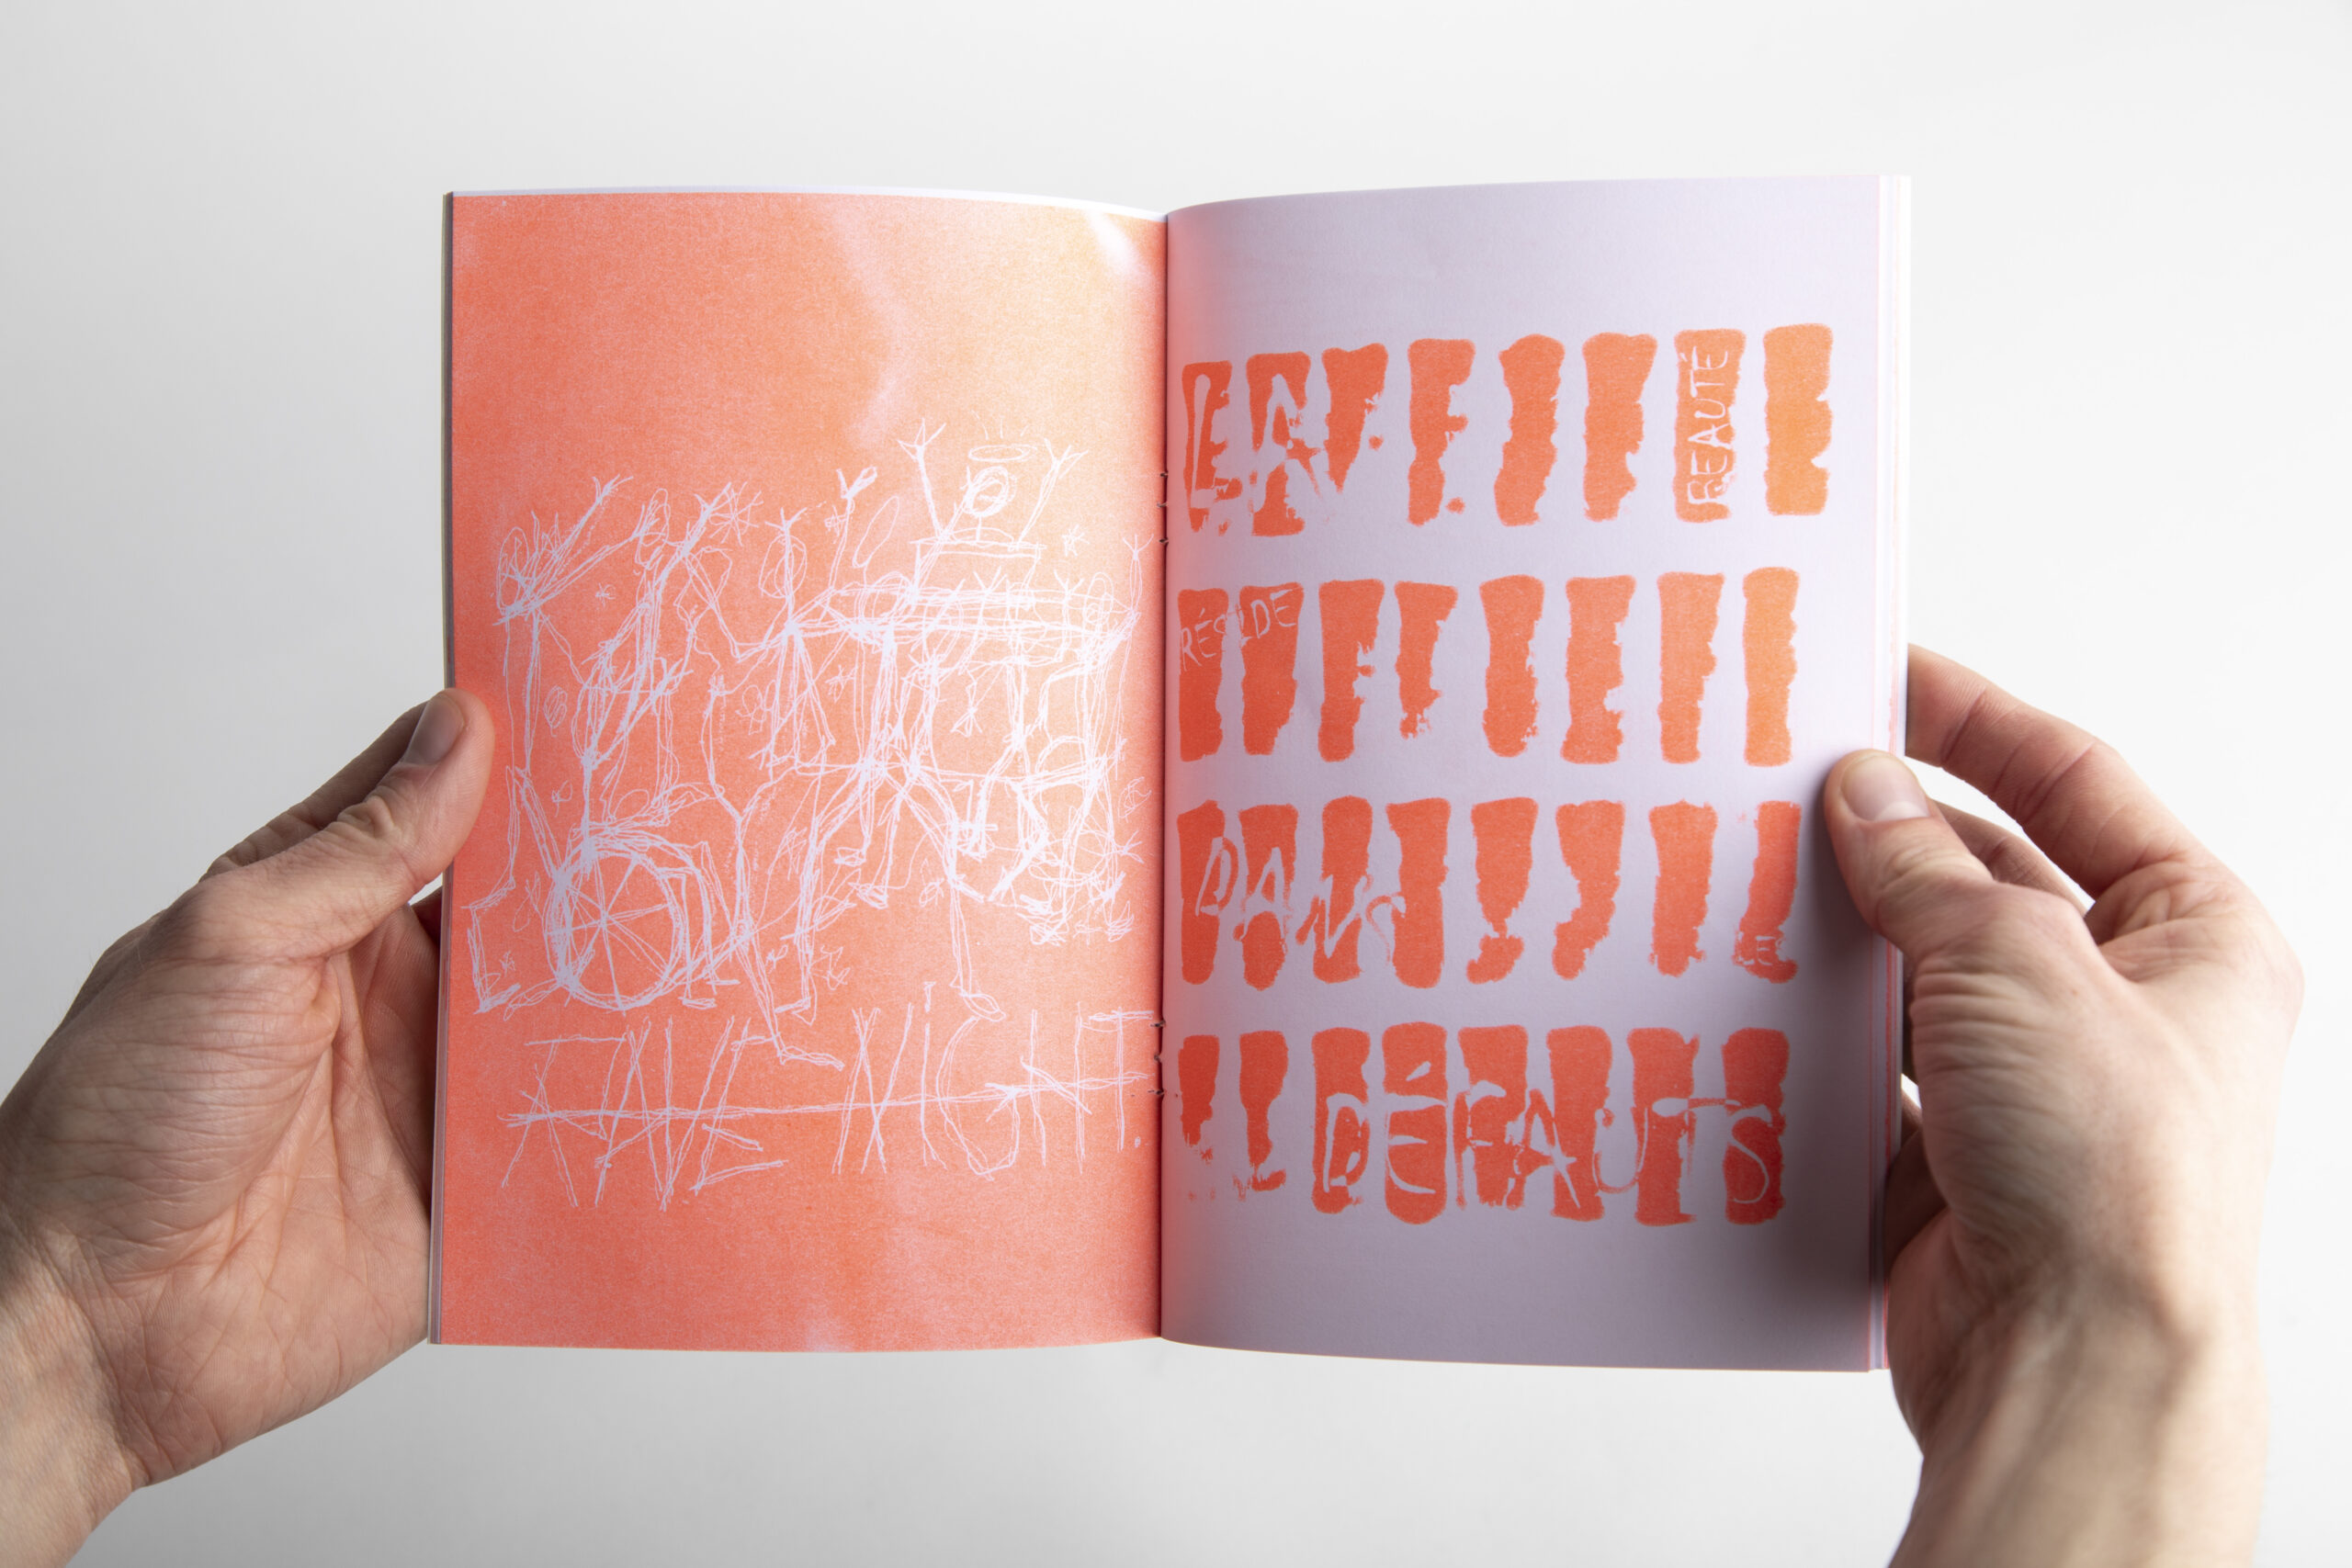 RAVE NIGHT.
LA BEAUTÉ
RÉSIDE
DANS LES
DÉFAUTS